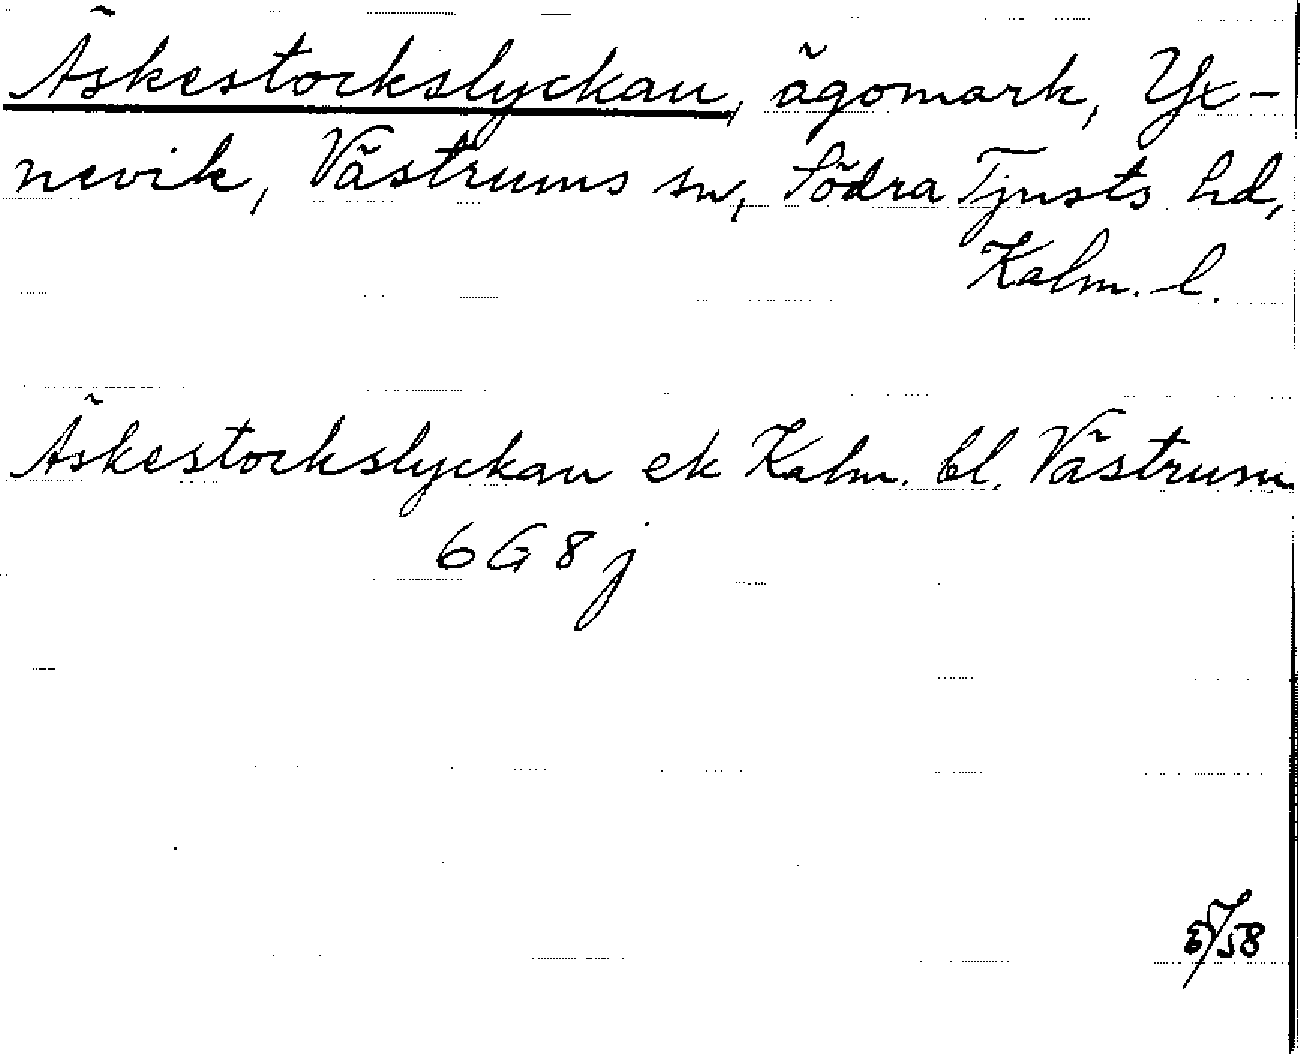 Äskestockslyckan, ägomark, Yx-
nevik, Västrums sn, Södra Tjusts hd,
Kalm. l.
Äskestockslyckan ek Kalm. bl. Västrum
6 G 8 j